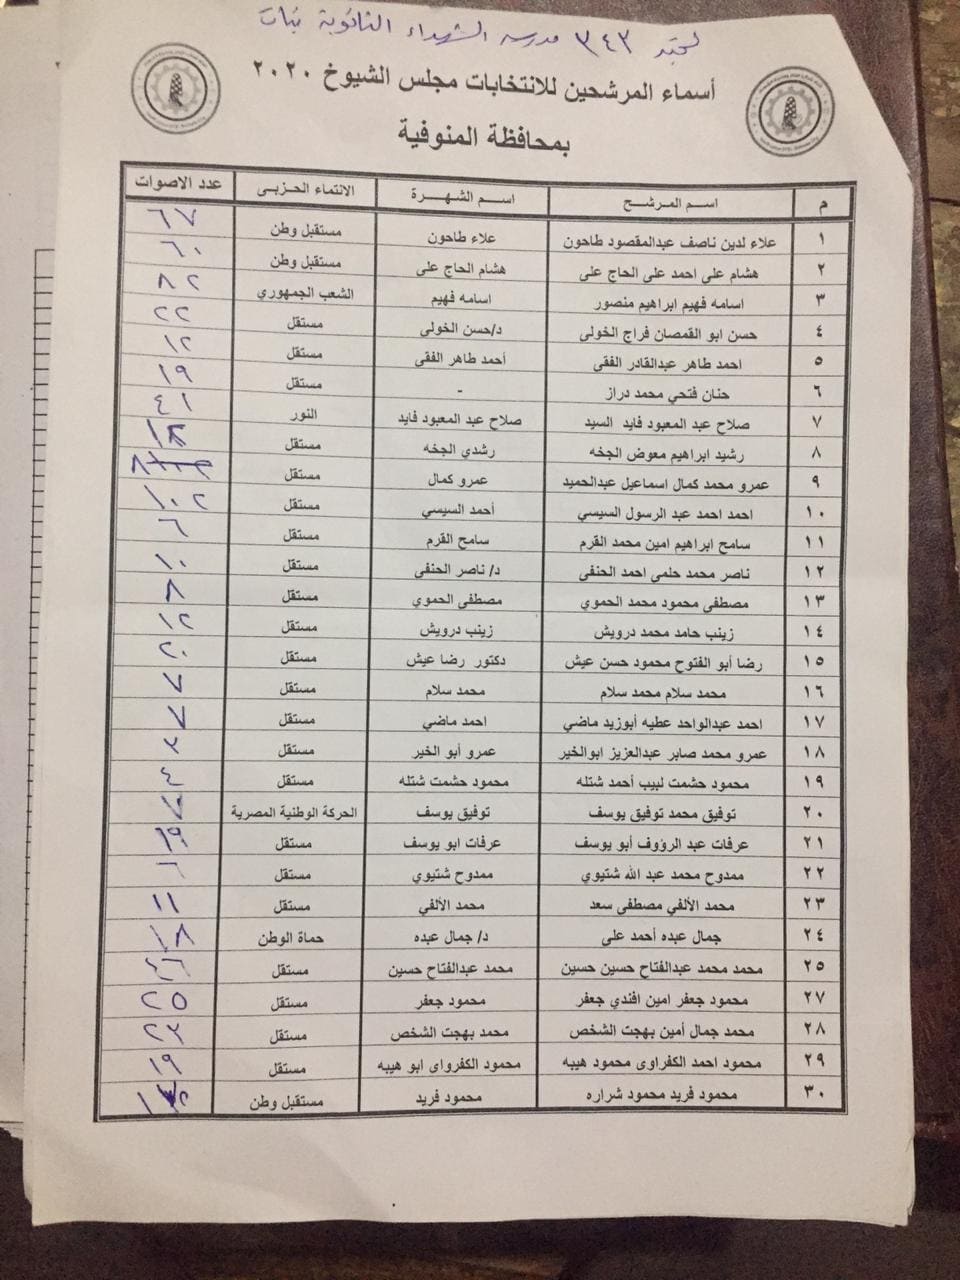 لجنة ٣٤٣ مدرسه الشهداء الثانوية بنات
أسماء المرشحين للانتخابات مجلس الشيوخ ٢٠٢٠
بمحافظة المنوفية
م اسم المرشح اسم الشهرة الانتماء الحزبى عدد الاصوات
١ علاء لدين ناصف عبدالمقصود طاحون علاء طاحون مستقبل وطن ٦٧
٢ هشام على احمد على الحاج على هشام الحاج على مستقبل وطن ٦٠
٣ اسامه فهيم ابراهيم منصور اسامه فهيم الشعب الجمهوري ٨٢
٤ حسن ابو القمصان فراج الخولى د/حسن الخولى مستقل ٢٢
٥ احمد طاهر عبدالقادر الفقى أحمد طاهر الفقى مستقل ١٢
٦ حنان فتحي محمد دراز - مستقل ١٩
٧ صلاح عبد المعبود فايد السيد صلاح عبد المعبود فايد النور ٤١
٨ رشيد ابراهيم معوض الجخه رشدي الجخه مستقل
٩ عمرو محمد كمال اسماعيل عبدالحميد عمرو كمال مستقل
١٠ احمد احمد عبد الرسول السيسي أحمد السيسي مستقل ١٠٢
١١ سامح ابراهيم امين محمد القرم سامح القرم مستقل ٦
١٢ ناصر محمد حلمى احمد الحنفى د/ ناصر الحنفى مستقل ١٠
١٣ مصطفى محمود محمد الحموي مصطفى الحموي مستقل ٨
١٤ زينب حامد محمد درويش زينب درويش مستقل ١٢
١٥ رضا أبو الفتوح محمود حسن عيش دكتور رضا عيش مستقل ٢٠
١٦ محمد سلام محمد سلام محمد سلام مستقل ٧
١٧ احمد عبدالواحد عطيه أبوزيد ماضي احمد ماضي مستقل ٧
١٨ عمرو محمد صابر عبدالعزيز ابوالخير عمرو أبو الخير مستقل ٣
١٩ محمود حشمت لبيب أحمد شتله محمود حشمت شتله مستقل
٢٠ توفيق محمد توفيق يوسف توفيق يوسف الحركة الوطنية المصرية
٢١ عرفات عبد الرؤوف أبو يوسف عرفات ابو يوسف مستقل
٢٢ ممدوح محمد عبد الله شتيوي ممدوح شتيوي مستقل
٢٣ محمد الألفي مصطفى سعد محمد الألفي مستقل ١١
٢٤ جمال عبده أحمد على د/ جمال عبده حماة الوطن ١٨
٢٥ محمد محمد عبدالفتاح حسين حسين محمد عبدالفتاح حسين مستقل
٢٧ محمود جعفر امين افندي جعفر محمود جعفر مستقل ٢٥
٢٨ محمد جمال أمين بهجت الشخص محمد بهجت الشخص مستقل ٢٣
٢٩ محمود احمد الكفراوى محمود هيبه محمود الكفرواى ابو هيبه مستقل ١٩
٣٠ محمود فريد محمود شراره محمود فريد مستقبل وطن